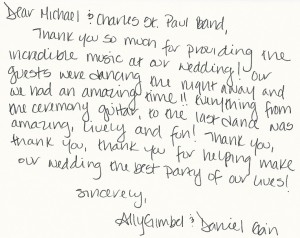 Dear Michael & Charles St. Paul Band,
Thank you so much for providing the
incredible music at our wedding! Our
guests were dancing the night away and
we had an amazing time!! Everything from
the ceremony guitar, to the last dance was
amazing, lively and fun! Thank you,
thank you, thank you for helping make
our wedding the best party of our lives!
Sincerely,
Ally Gimbel & Daniel